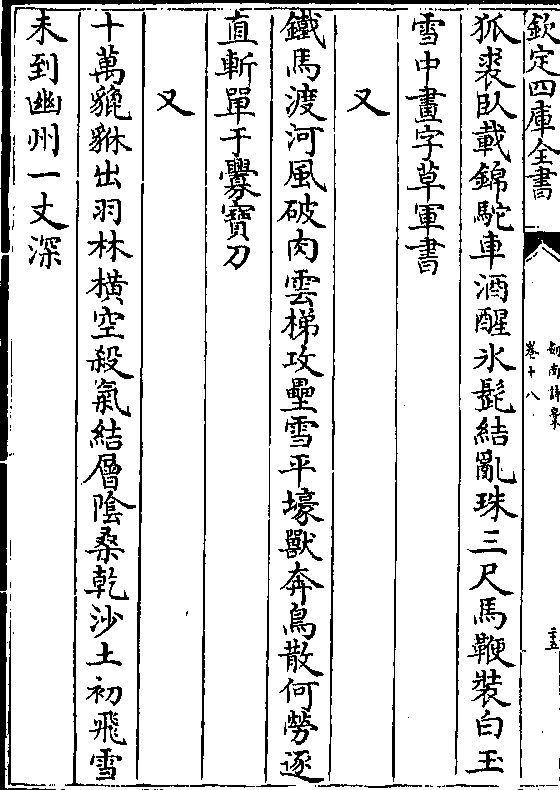 欽定四庫全書
劍南詩稾
卷十八
狐裘臥載錦駝車酒醒氷髭結亂珠三尺馬鞭裝白玉
雪中畫字草軍書
又
鐵馬渡河風破肉雲梯攻壘雪平壕獸奔鳥散何勞逐
直斬單于釁寶刀
又
十萬貔貅出羽林橫空殺氣結層陰桑乾沙土初飛雪
未到幽州一丈深